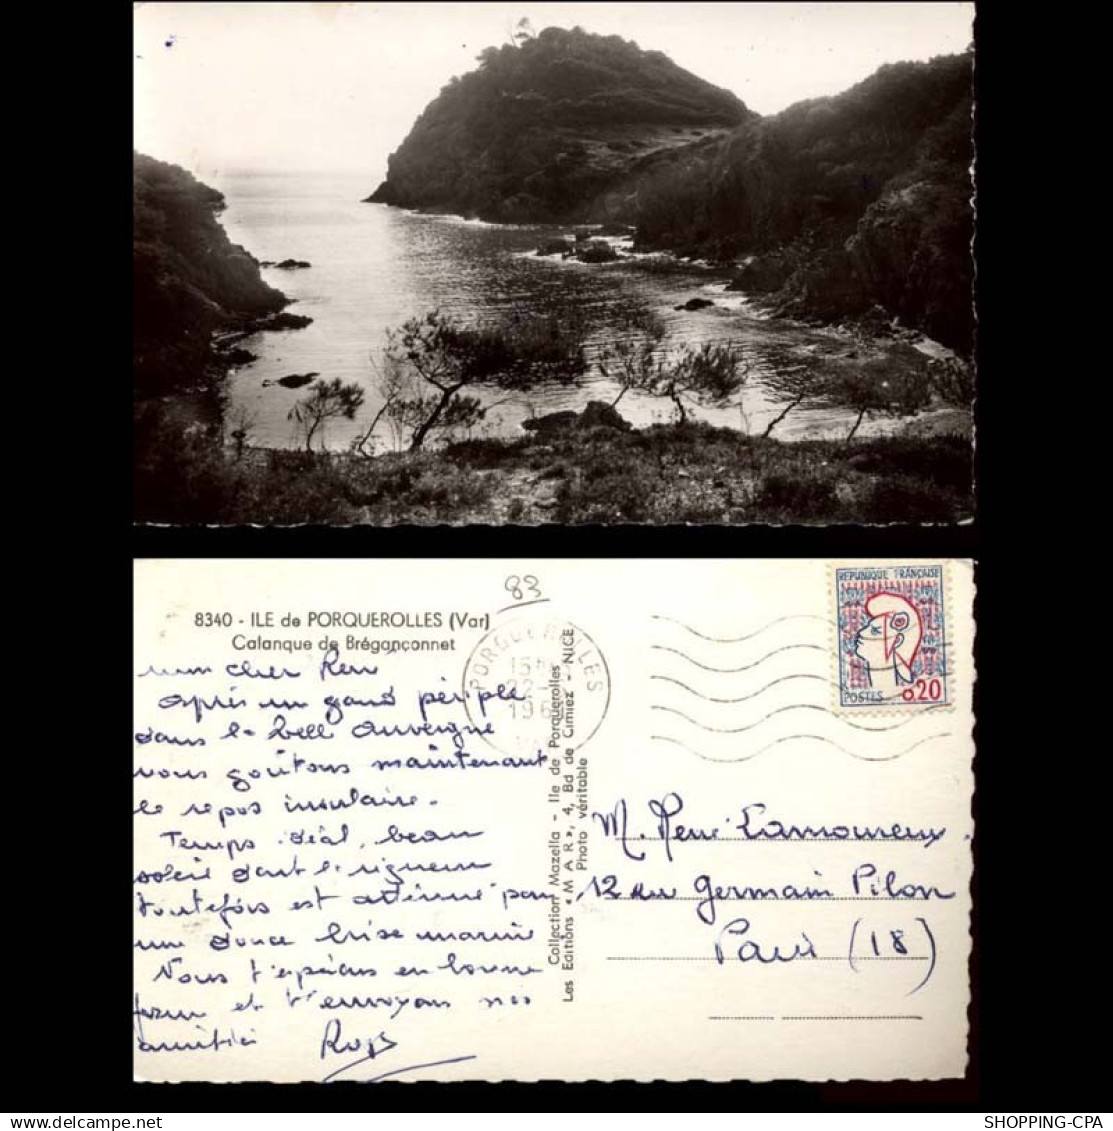 83
8340 - ILE de PORQUEROLLES (Var)
Calanque de Brégançonnet
mon cher René
après un grand périple
dans la belle Auvergne
nous goûtons maintenant
le repos insulaire.
Temps idéal, beau
soleil dont la rigueur
toutefois est atténué par
une douce brise marine
Nous t'espérons en bonne
forme et t'envoyons nos
amitiés
PORQUEROLLES
REPUBLIQUE FRANÇAISE
POSTES 0,20
Collection Mazella - Ile de Porquerolles
Les Editions « M A R », 4, Bd de Cimiez - NICE
Photo véritable
M. René Lamoureux
12 rue Germain Pilon
Paris (18)
SHOPPING-CPA